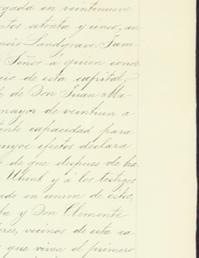 ogada en veintinueve
ntos setenta y cinco, an
ncis Landgrave. Jam
Señor a quien conoz
cio de esta capital,
te de Don Juan Ma-
mayor de veintiun a
ente capacidad para
cuyos efectos declara
de que despues de ha
y á los testigos
ado en union de estos,
ba y Don Clemente
res, vecinos de esta ca
que vive el primero